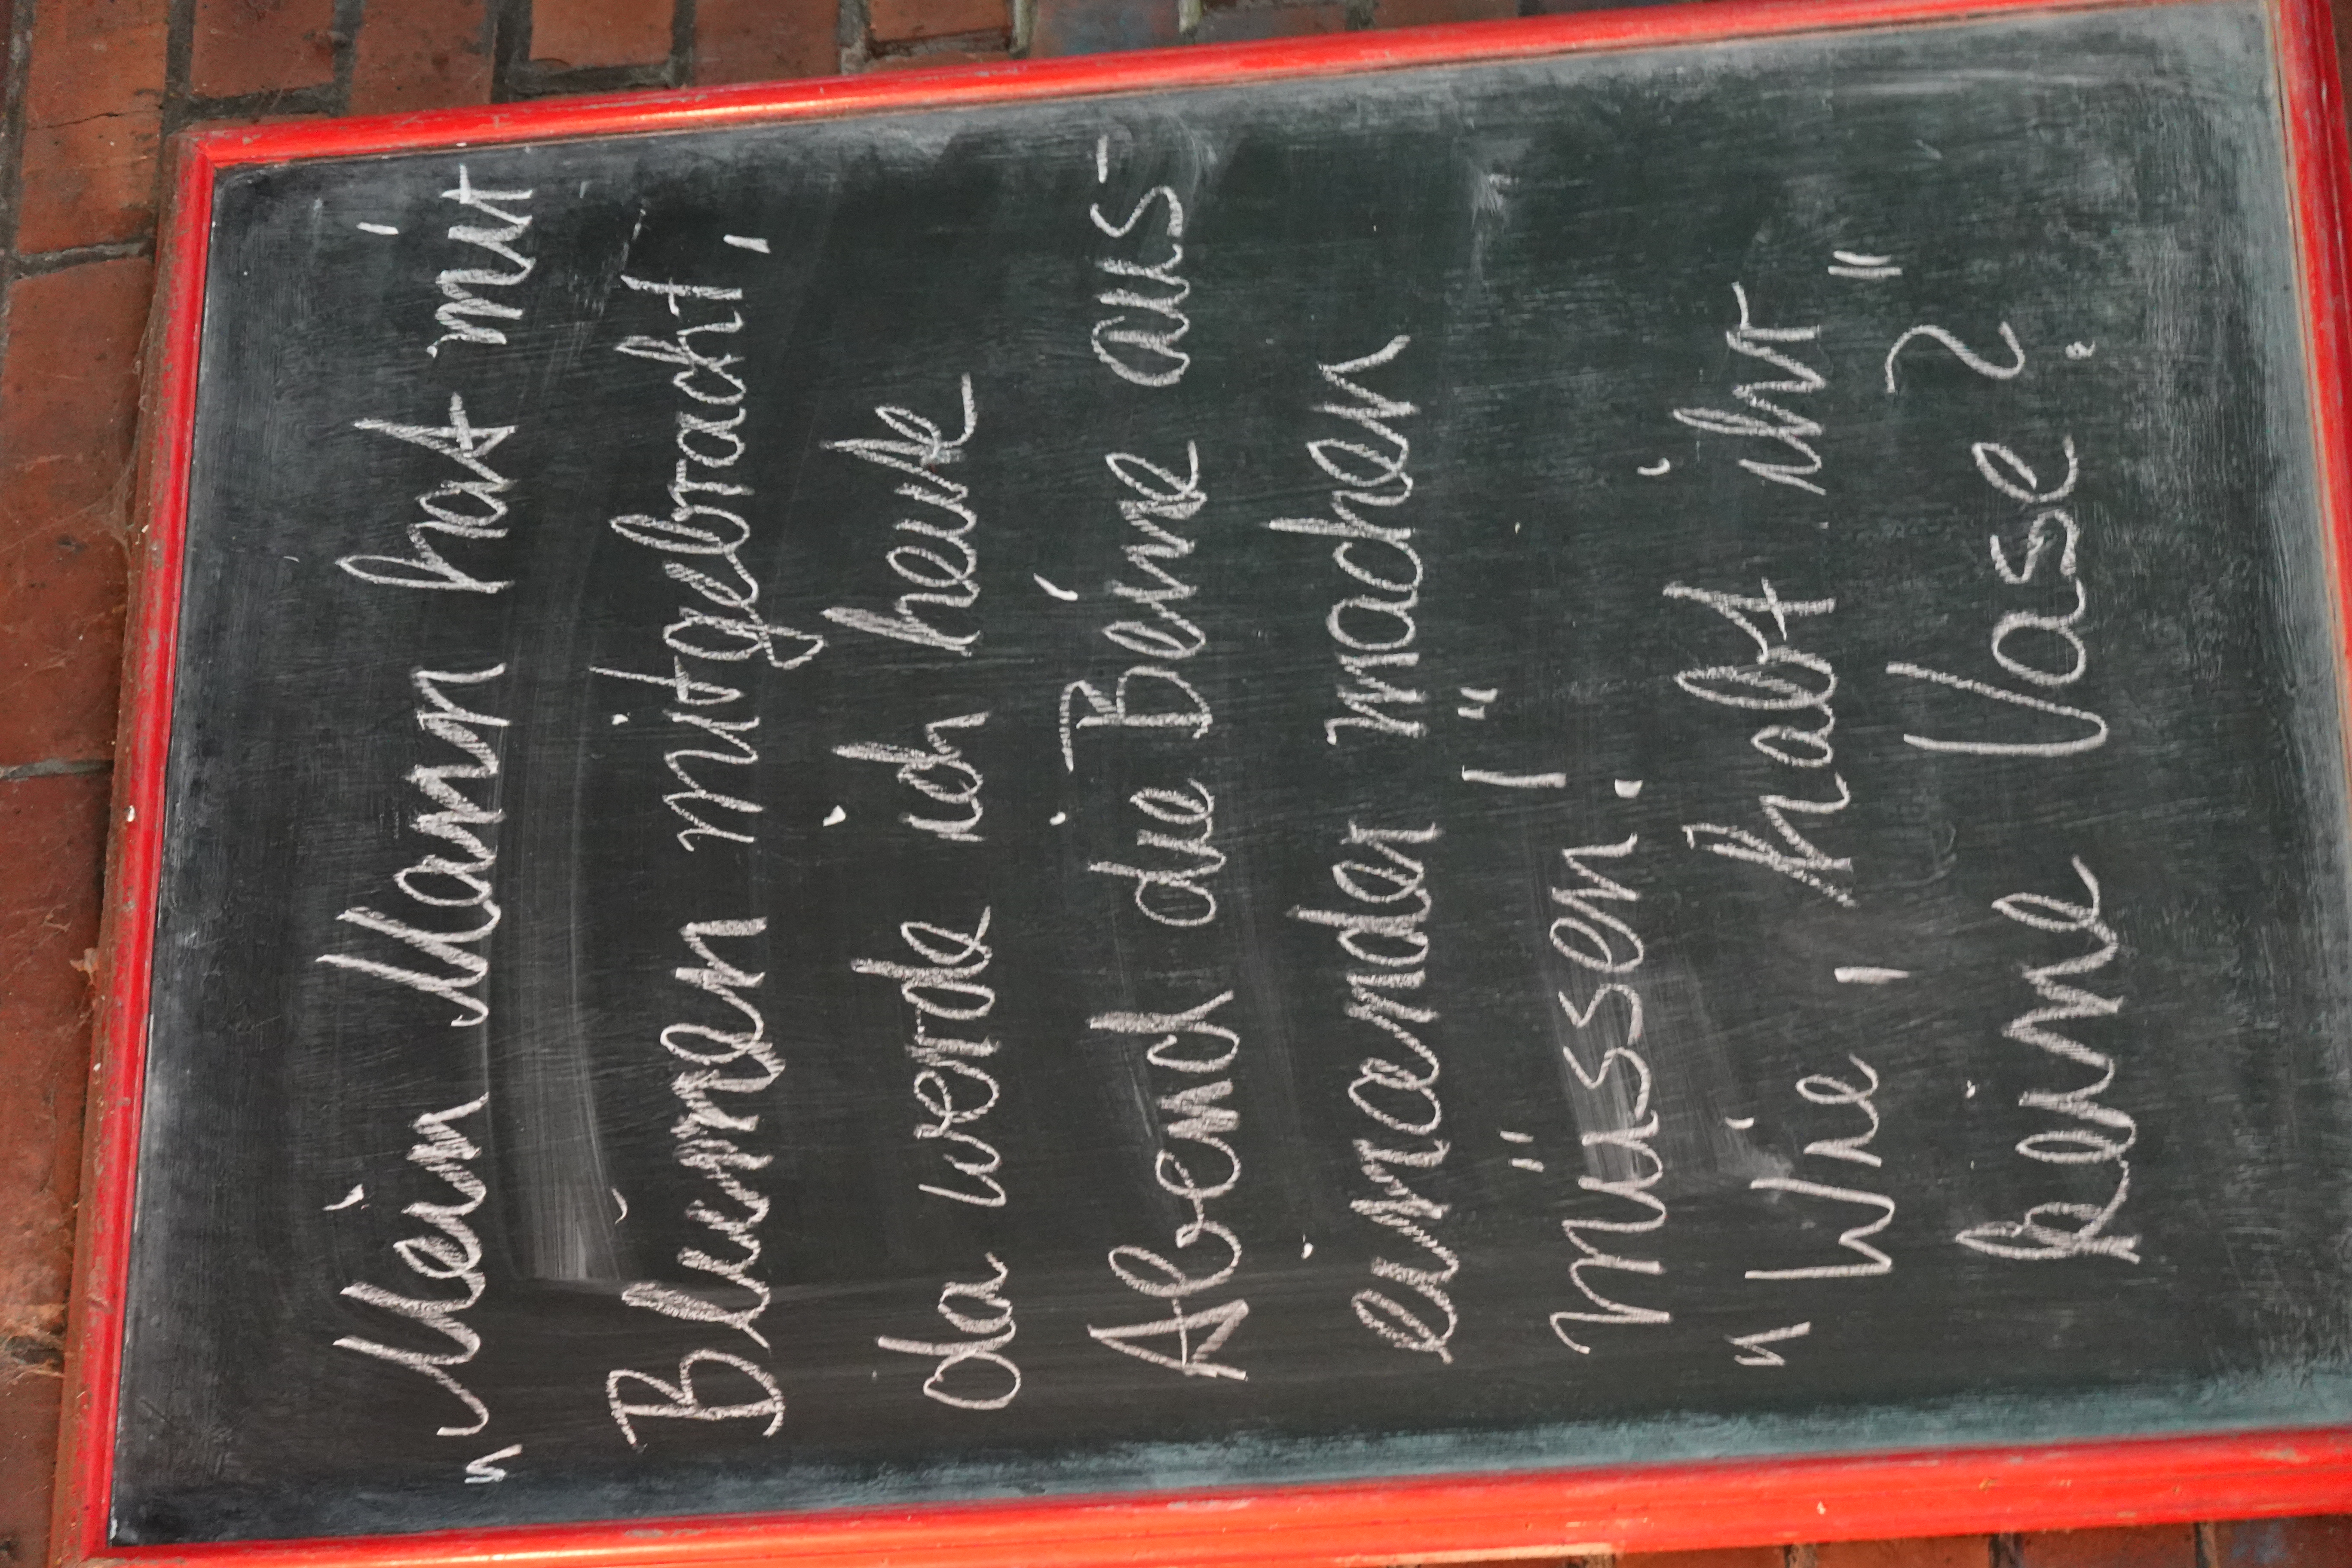 „Mein Mann hat mir
Blumen mitgebracht,
da werde ich heute
Abend die Beine aus-
einander machen
müssen!"
„Wie, habt ihr
keine Vase?"